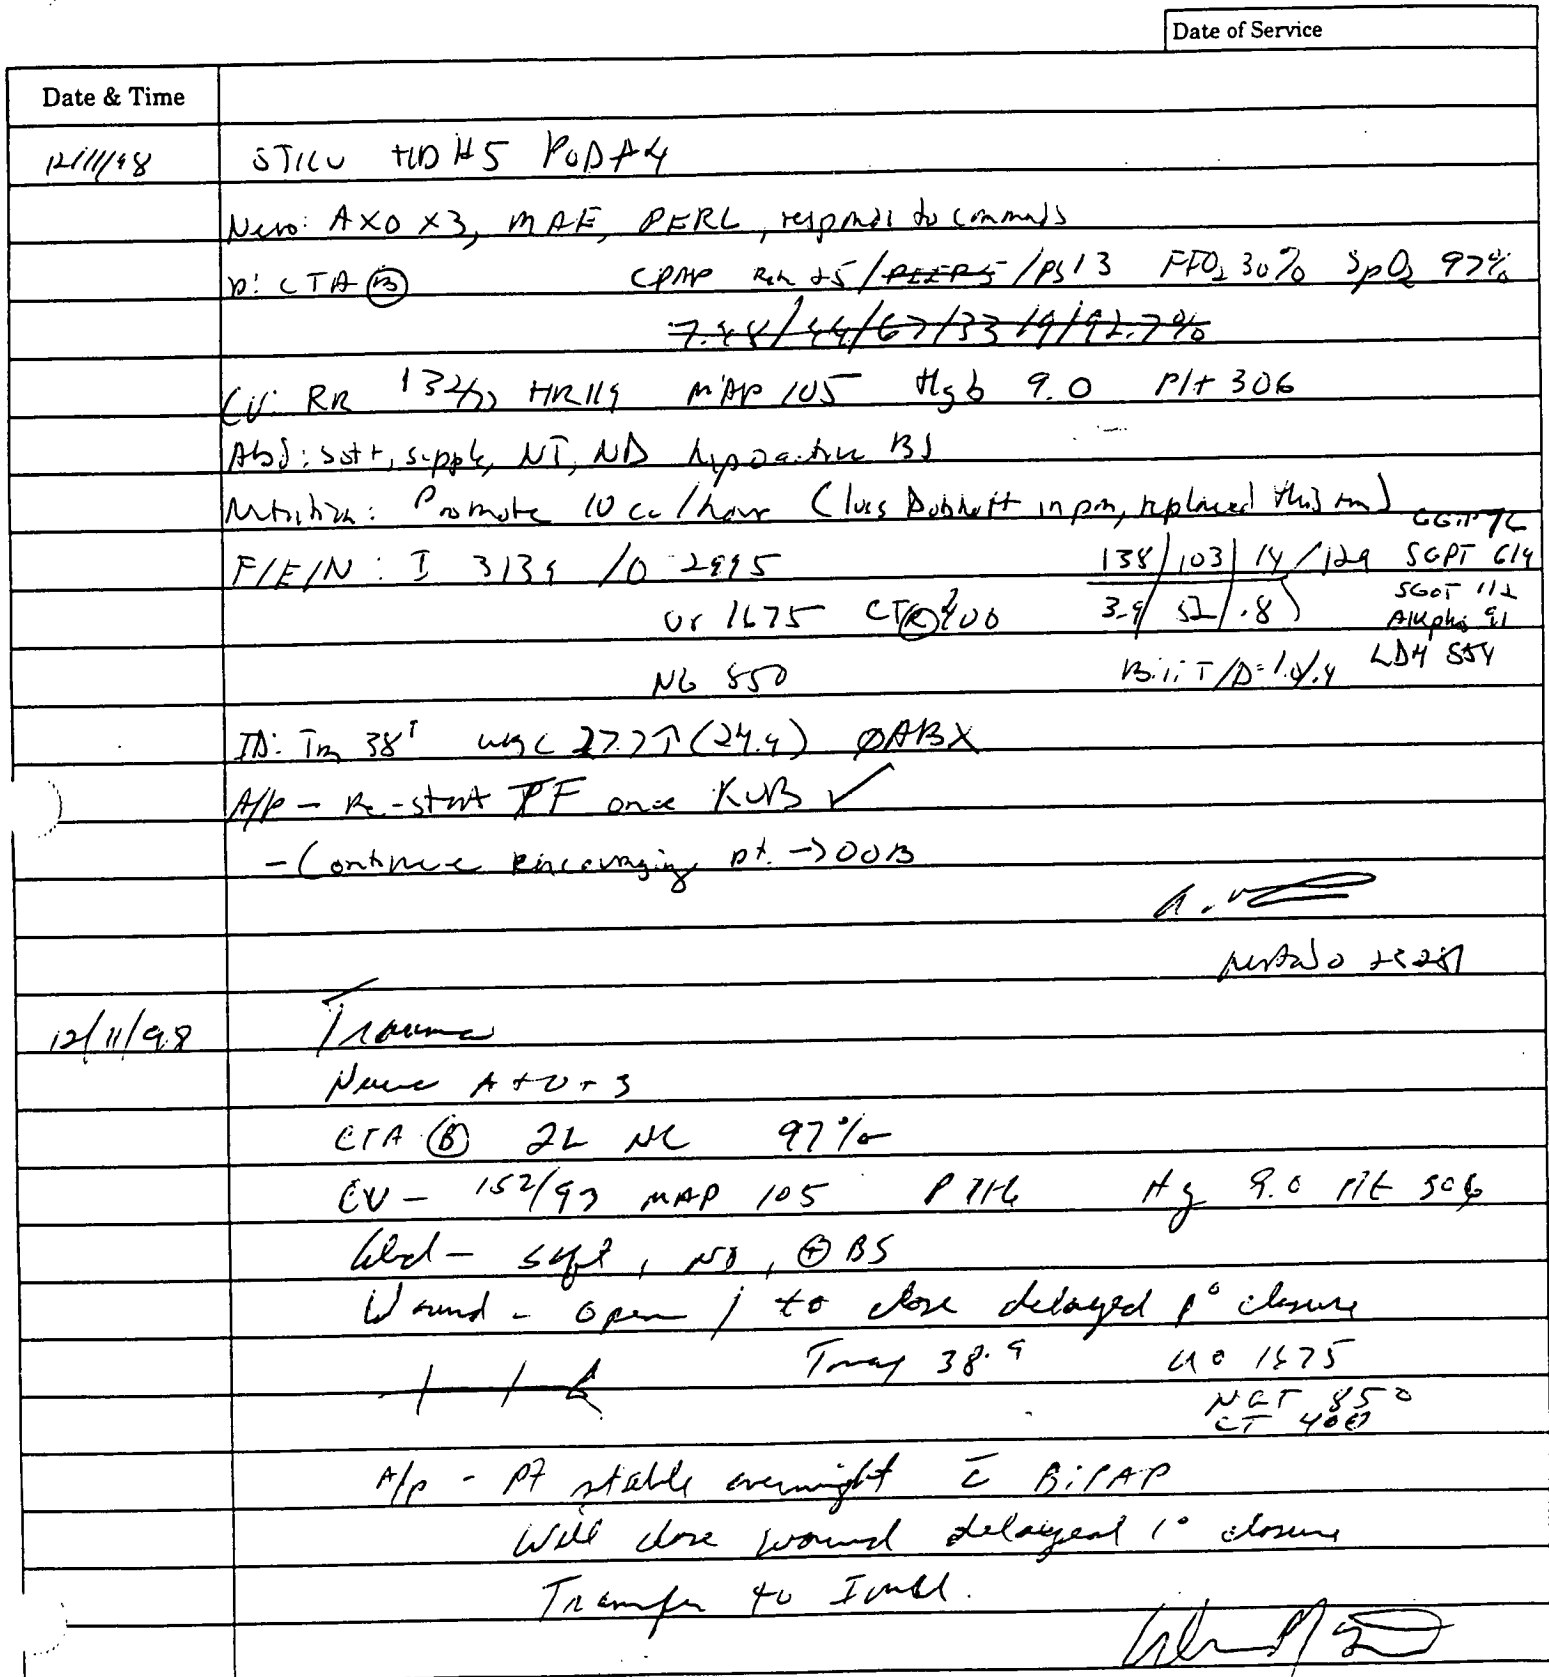 Date of Service
Date & Time
12/11/98 STICU HD #5 POD #4
Neuro: AXO X3, MAE, PERL, responds to commands
P: CTA (B) CPAP +5 / PEEP 5 / PS 13 FIO2 30% SpO2 97%
7.48/44/67/33/9/92.7%
CV: RR HR 119 MAP 105 Hgb 9.0 Plt 306
Abd: soft, supple, NT, ND hypoactive BS
Nutrition: Promote 10 cc/hour (loss Dobhoff in pm, replaced this am)
F/E/N: I 3139 /O 2995 138/103/14/129 SGPT 619
3.9/32/.8 SGOT 112
Ur 1675 CT (R) 400 Alkphos 91
NG 850 Bili T/D= LDH 554
ID: Tm 38 WBC 27.7↑(24.4) ØABX
A/P - Re-start TF once KUB ✓
- Continue encouraging pt. → OOB
12/11/98 Trauma
Neuro A+O+3
CTA (B) 2L NC 97%
CV - 152/93 MAP 105 P 116 Hg 9.0 Plt 306
Abd - soft, ND, ⊕ BS
Wound - open / to close delayed 1° closure
Tmax 38.9 UO 1675
NGT 850
CT 400
A/P - Pt stable overnight c̄ BiPAP
Will close wound delayed 1° closure
Transfer to